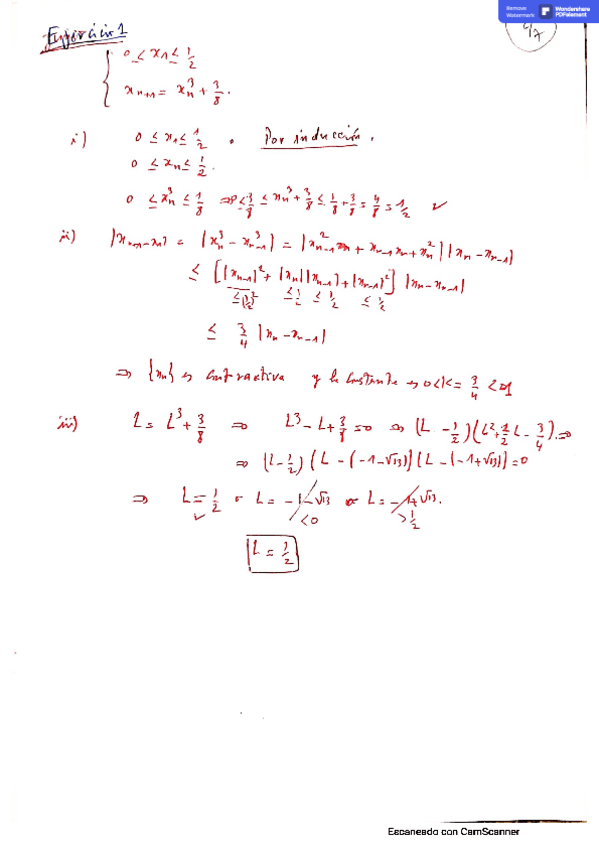 Remove Watermark Wondershare PDFelement
4/7
Ejercicio 1
0 ≤ x₁ ≤ 1/2
xₙ₊₁ = xₙ³ + 3/8.
i) 0 ≤ x₁ ≤ 1/2. Por inducción.
0 ≤ xₙ ≤ 1/2.
0 ≤ xₙ³ ≤ 1/8 ⇒ 3/8 ≤ xₙ³ + 3/8 ≤ 1/8 + 3/8 = 4/8 = 1/2 ✓
ii) |xₙ₊₁ - xₙ| = |xₙ³ - xₙ₋₁³| = |xₙ₋₁² + xₙ₋₁xₙ + xₙ²| |xₙ - xₙ₋₁|
≤ [|xₙ₋₁|² + |xₙ||xₙ₋₁| + |xₙ₋₁|²] |xₙ - xₙ₋₁|
≤(1/2)² ≤1/2 ≤1/2 ≤1/2
≤ 3/4 |xₙ - xₙ₋₁|
⇒ {xₙ} es contractiva y la constante es 0<K= 3/4 <1
iii) L = L³ + 3/8 ⇒ L³ - L + 3/8 = 0 ⇒ (L - 1/2)(L² + 1/2 L - 3/4) = 0
⇒ (L - 1/2)(L - (-1-√13))(L - (-1+√13)) = 0
⇒ L = 1/2 o L = -1-√13 o L = -1+√13.
✓ <0 >1/2
L = 1/2
Escaneado con CamScanner